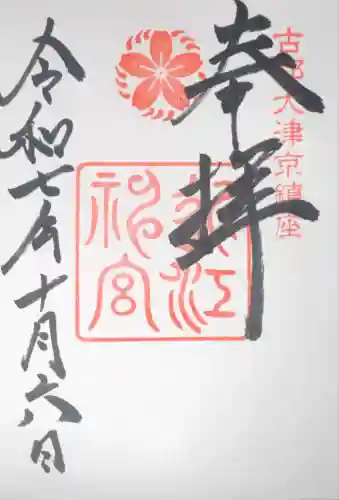 奉拝
古都大津京鎮座
近江
神宮
令和七年十月六日